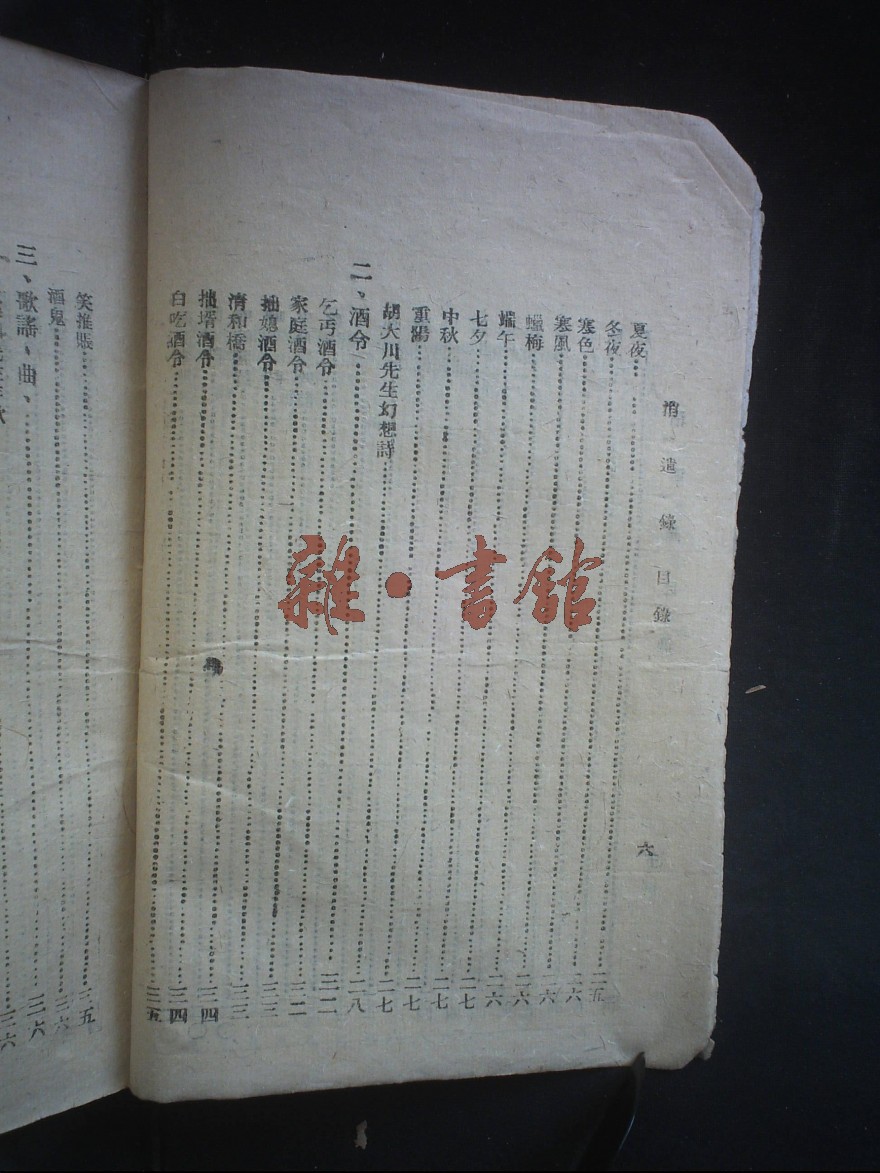 消遣錄 目錄 六
夏夜……二五
冬夜……二六
寒色……二六
寒風……二六
蠟梅……二六
端午……二七
七夕……二七
中秋……二七
重陽……二七
胡大川先生幻想詩……二八
二、酒令……三二
乞丐酒令……三二
家庭酒令……三三
拙媳酒令……三三
清和橋……三四
拙壻酒令……三四
白吃酒令……三五
笑推賬……三五
酒鬼……三六
三、歌謠、曲、……三六
三六
雜·書館